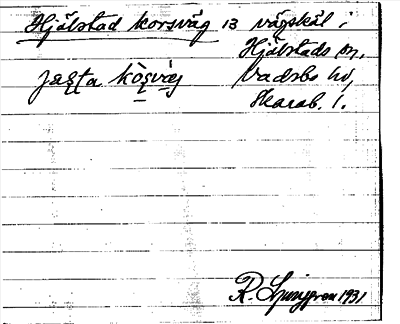 Hjälstad korsväg 13 vägskäl i
Hjälstads sn,
Vadsbo hd,
Skarab. l.
R. Ljunggren 1931